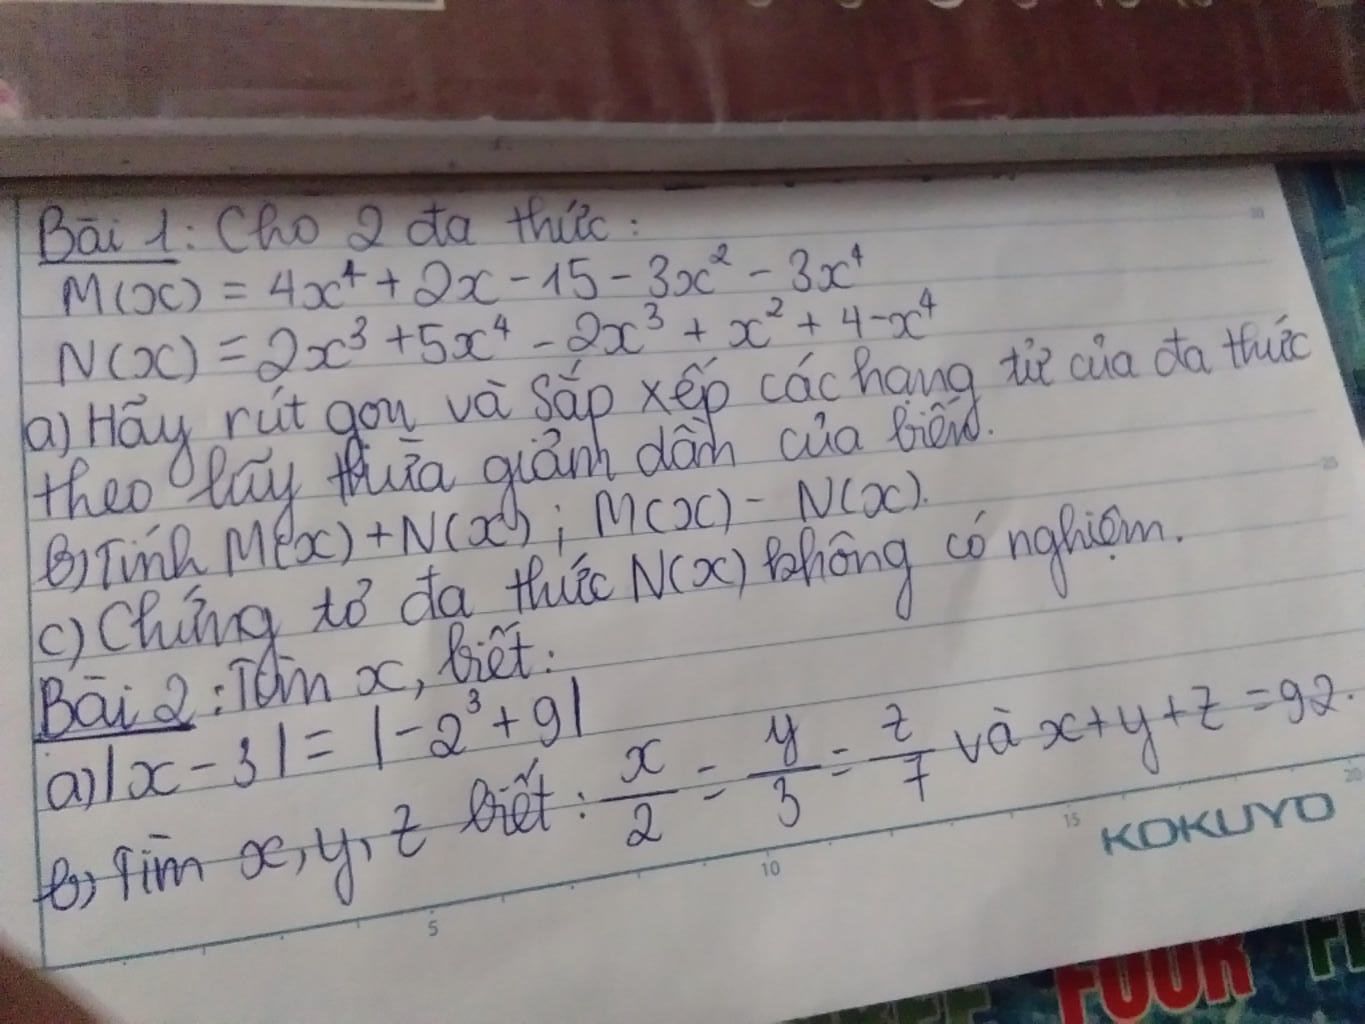 Bài 1: Cho 2 đa thức:
M(x) = 4x⁴ + 2x - 15 - 3x² - 3x⁴
N(x) = 2x³ + 5x⁴ - 2x³ + x² + 4 - x⁴
a) Hãy rút gọn và sắp xếp các hạng tử của đa thức
theo lũy thừa giảm dần của biến.
b) Tính M(x) + N(x); M(x) - N(x).
c) Chứng tỏ đa thức N(x) không có nghiệm.
Bài 2: Tìm x, biết:
a) |x - 3| = |-2³ + 9|
b) Tìm x, y, z biết: x/2 = y/3 = z/7 và x + y + z = 92.
5 10 15 20
25
30
KOKUYO
FOUR